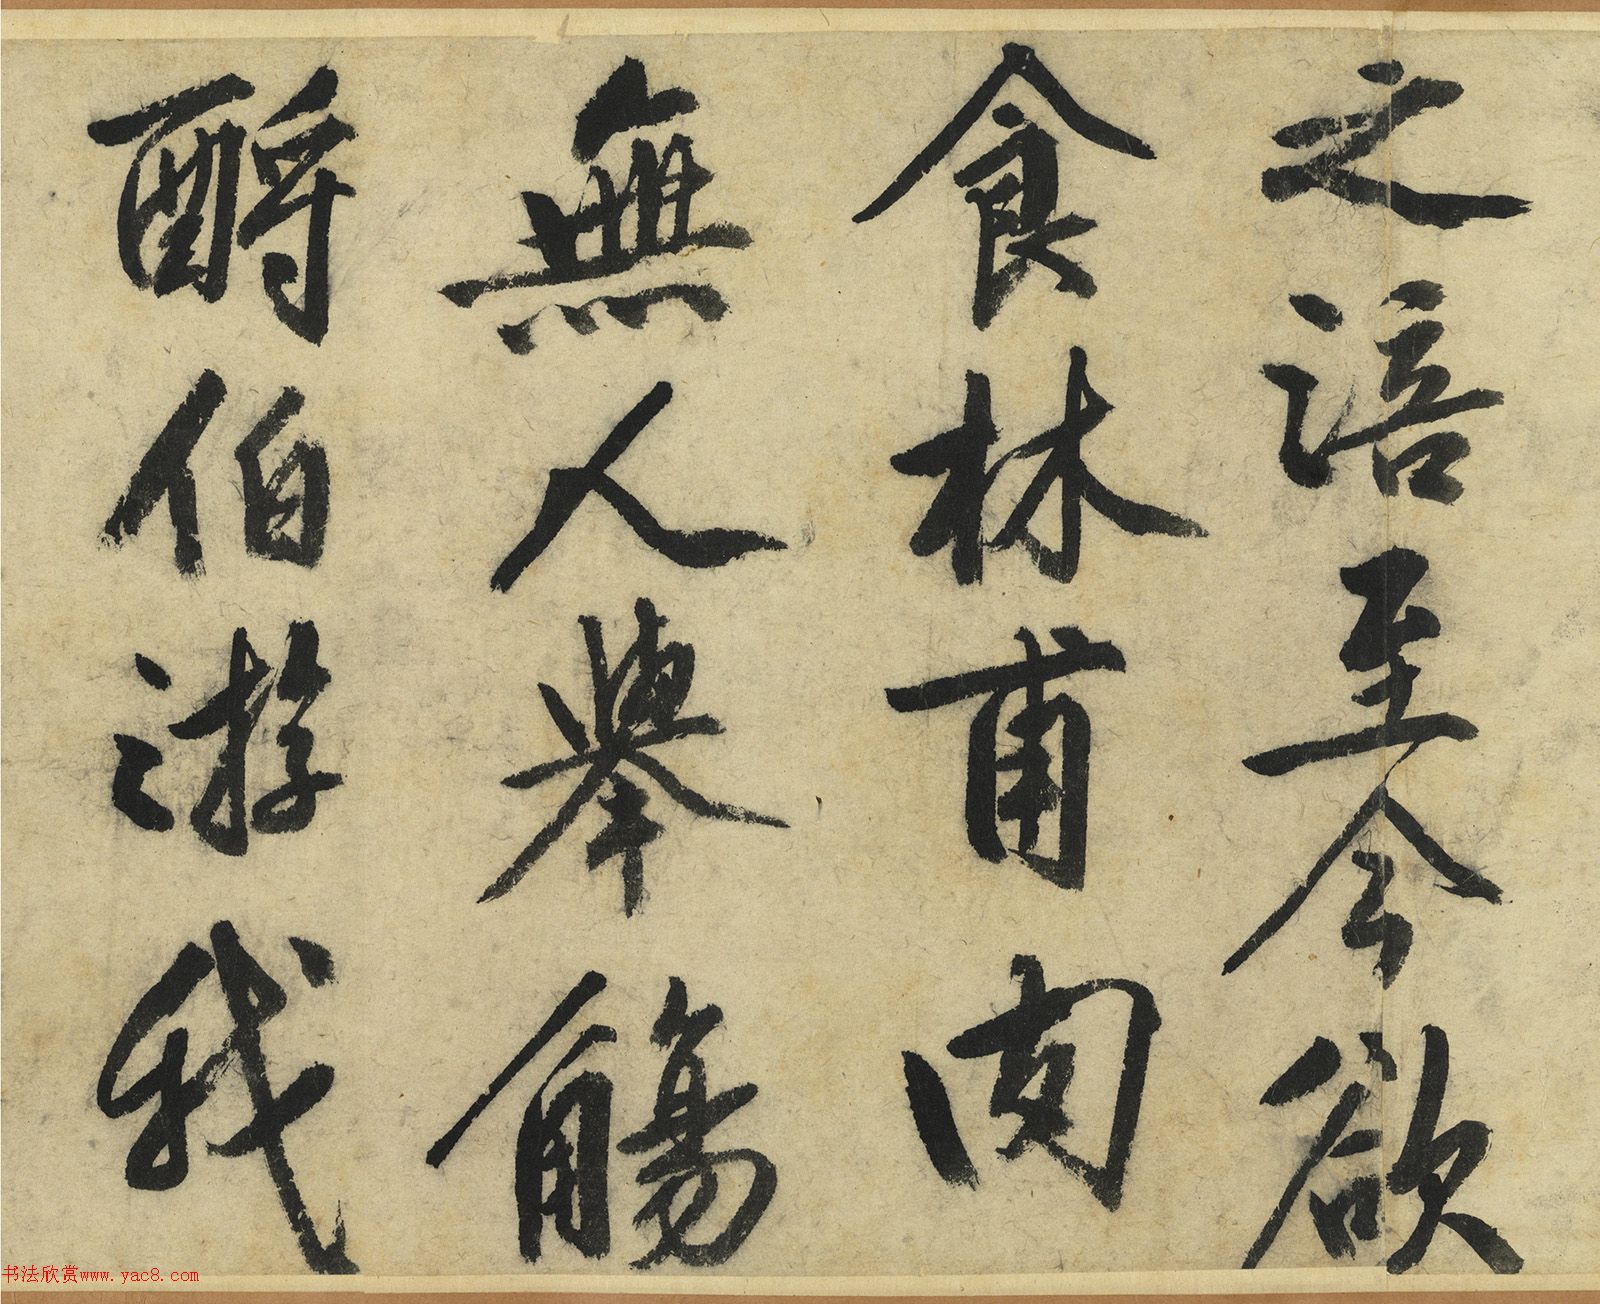 之涪至今欲
食林甫肉
無人舉觴
酹伯游我
书法欣赏www.yac8.com